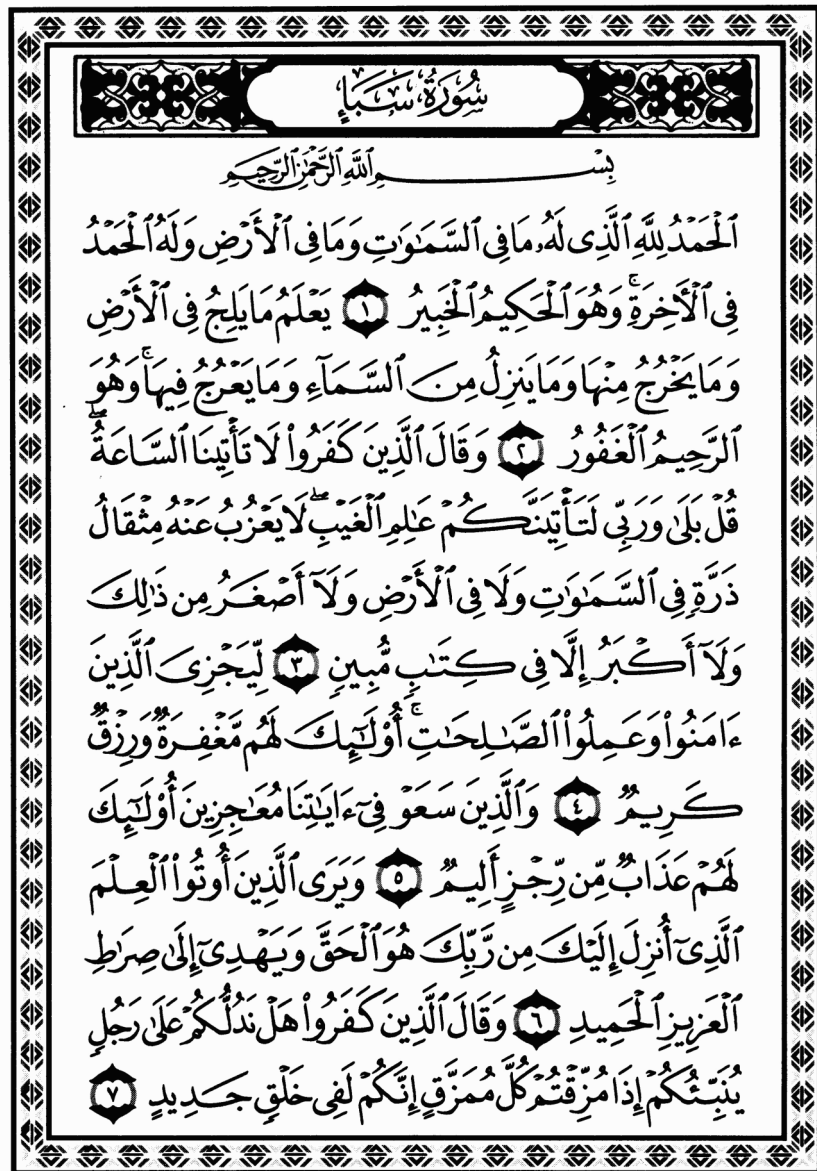 سُورَةُ سَبَإٍ
بِسْمِ ٱللَّهِ ٱلرَّحْمَٰنِ ٱلرَّحِيمِ
ٱلْحَمْدُ لِلَّهِ ٱلَّذِى لَهُۥ مَا فِى ٱلسَّمَٰوَٰتِ وَمَا فِى ٱلْأَرْضِ وَلَهُ ٱلْحَمْدُ
فِى ٱلْءَاخِرَةِ ۚ وَهُوَ ٱلْحَكِيمُ ٱلْخَبِيرُ ١ يَعْلَمُ مَا يَلِجُ فِى ٱلْأَرْضِ
وَمَا يَخْرُجُ مِنْهَا وَمَا يَنزِلُ مِنَ ٱلسَّمَآءِ وَمَا يَعْرُجُ فِيهَا ۚ وَهُوَ
ٱلرَّحِيمُ ٱلْغَفُورُ ٢ وَقَالَ ٱلَّذِينَ كَفَرُوا۟ لَا تَأْتِينَا ٱلسَّاعَةُ ۖ
قُلْ بَلَىٰ وَرَبِّى لَتَأْتِيَنَّكُمْ عَٰلِمِ ٱلْغَيْبِ ۖ لَا يَعْزُبُ عَنْهُ مِثْقَالُ
ذَرَّةٍ فِى ٱلسَّمَٰوَٰتِ وَلَا فِى ٱلْأَرْضِ وَلَآ أَصْغَرُ مِن ذَٰلِكَ
وَلَآ أَكْبَرُ إِلَّا فِى كِتَٰبٍ مُّبِينٍ ٣ لِّيَجْزِىَ ٱلَّذِينَ
ءَامَنُوا۟ وَعَمِلُوا۟ ٱلصَّٰلِحَٰتِ ۚ أُو۟لَٰٓئِكَ لَهُم مَّغْفِرَةٌ وَرِزْقٌ
كَرِيمٌ ٤ وَٱلَّذِينَ سَعَوْ فِىٓ ءَايَٰتِنَا مُعَٰجِزِينَ أُو۟لَٰٓئِكَ
لَهُمْ عَذَابٌ مِّن رِّجْزٍ أَلِيمٌ ٥ وَيَرَى ٱلَّذِينَ أُوتُوا۟ ٱلْعِلْمَ
ٱلَّذِىٓ أُنزِلَ إِلَيْكَ مِن رَّبِّكَ هُوَ ٱلْحَقَّ وَيَهْدِىٓ إِلَىٰ صِرَٰطِ
ٱلْعَزِيزِ ٱلْحَمِيدِ ٦ وَقَالَ ٱلَّذِينَ كَفَرُوا۟ هَلْ نَدُلُّكُمْ عَلَىٰ رَجُلٍ
يُنَبِّئُكُمْ إِذَا مُزِّقْتُمْ كُلَّ مُمَزَّقٍ إِنَّكُمْ لَفِى خَلْقٍ جَدِيدٍ ٧